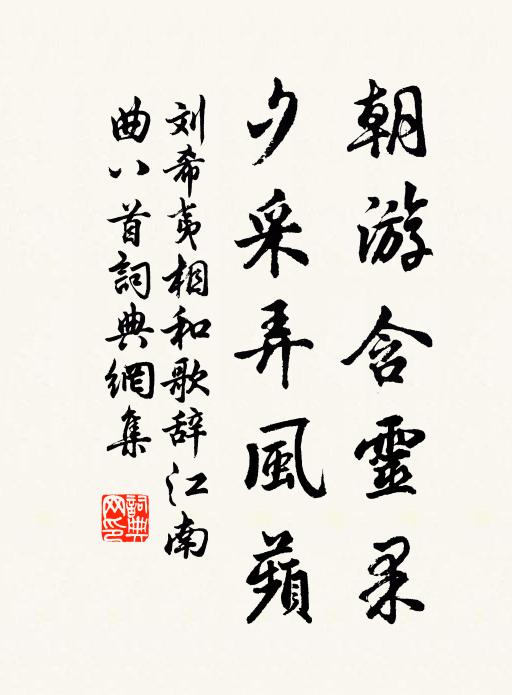 朝游含靈果
夕采弄風蘋
刘希夷相和歌辞江南
曲八首詞典網集
詞典
网印